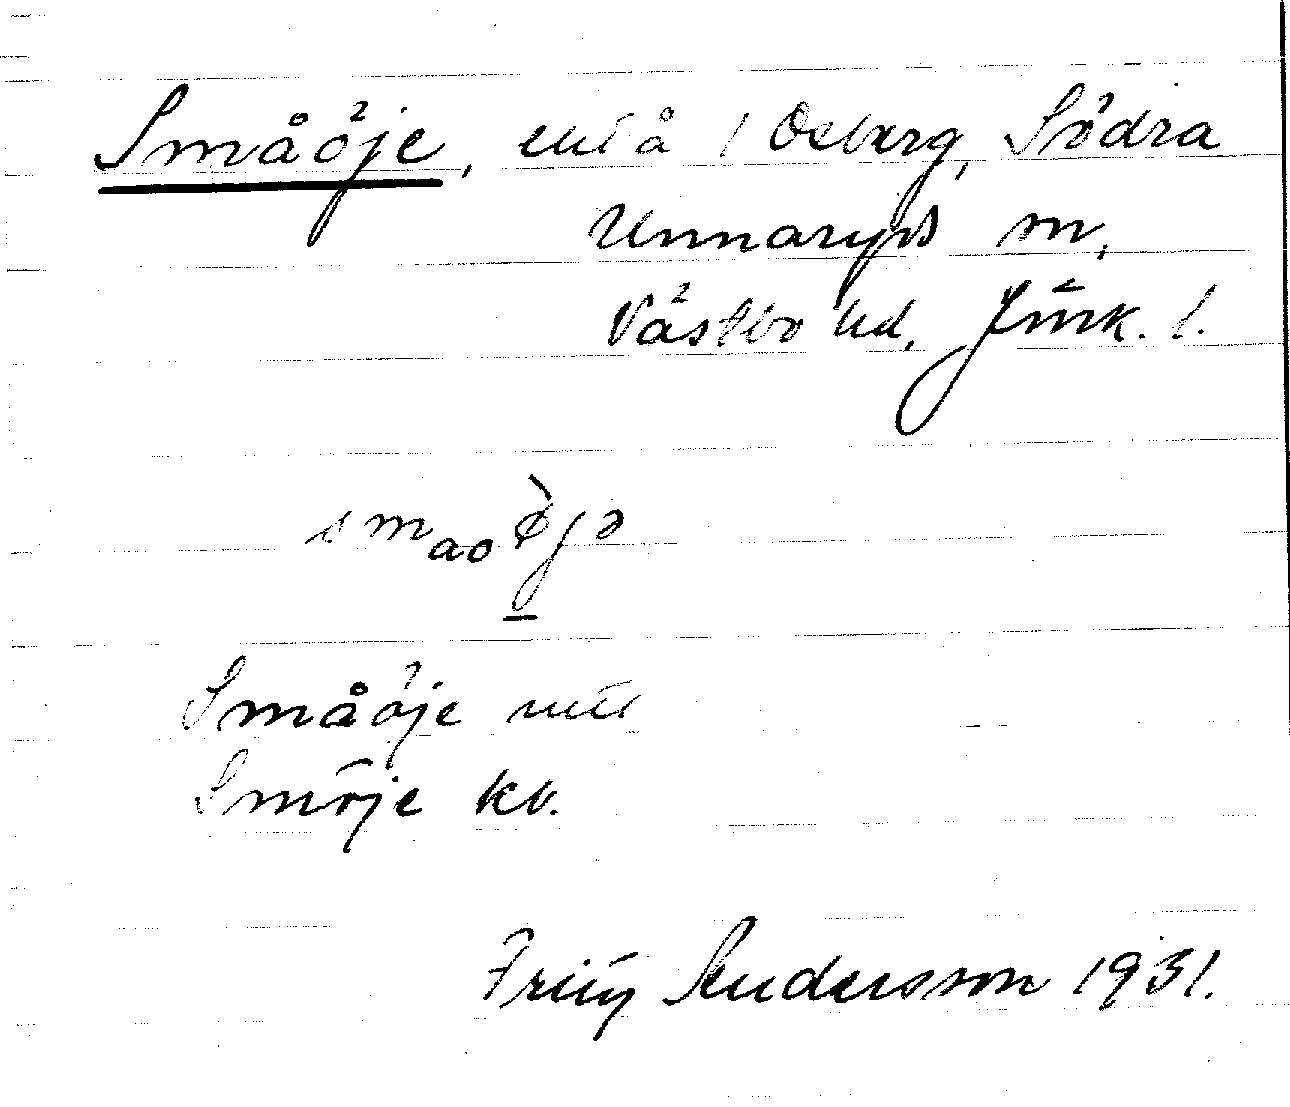 Småöje, enl å / Osberg, Södra
Unnaryds sn,
Västbo hd, Jönk. l.
smaoø̀jə
Småöje
Smöje kb.
Andersson 1931.